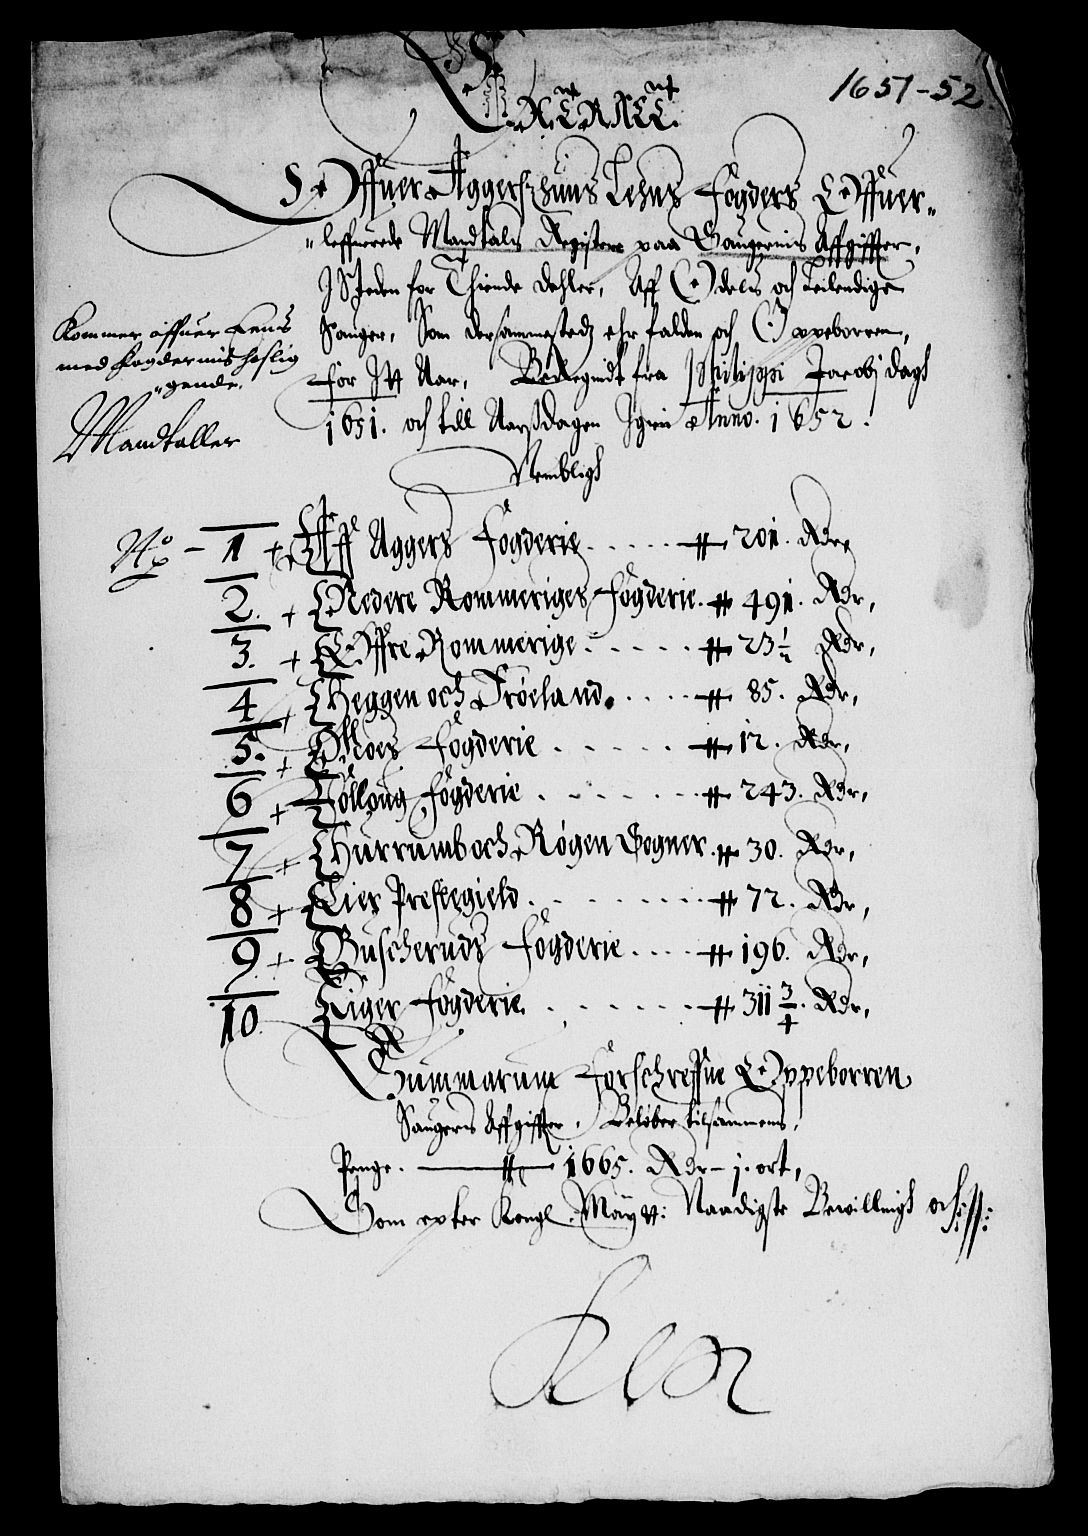 1651-52.
Offuer Aggershuus Lehns Fogders Offuer-
leffuerede Mandtals Register paa Saugernis Affgiffter,
I Steden for Thiende dehler, Aff Odels och Leilendige
Sauger, Som dersammestedz ehr falden och Oppeborren,
for Itt Aar, Beregnidt fra Philippi Jacobj dags
1651. och till Aarsdagen Igien Anno. 1652.
Nembligh
Kommer offuer Eens
med fogdernis hoslig
gende.
Mandtaller
No - 1 + Aff Aggers Fogderie 201. Rdr,
2. + Nedere Rommeriges Fogderie. 491. Rdr,
3. + Offre Rommerige 23½ Rdr,
4 + Heggen och Frøeland. 85. Rdr,
5. + Moes Fogderie 12. Rdr,
6 + Folloug Fogderie 243. Rdr,
7 + Hurrumb och Røgen Sogner. 30. Rdr,
8 + Lier Prestegield 72. Rdr,
9 + Buscheruds Fogderie 196. Rdr,
10. Eiger Fogderie 311 3/4. Rdr,
Summarum Forschreffne Oppeborren
Saugerns Affgiffter, Beløber tilsammens,
Penge. 1665. Rdr - j. ort,
Som epter Kongl. Mayt: Naadigste Bewillingh och